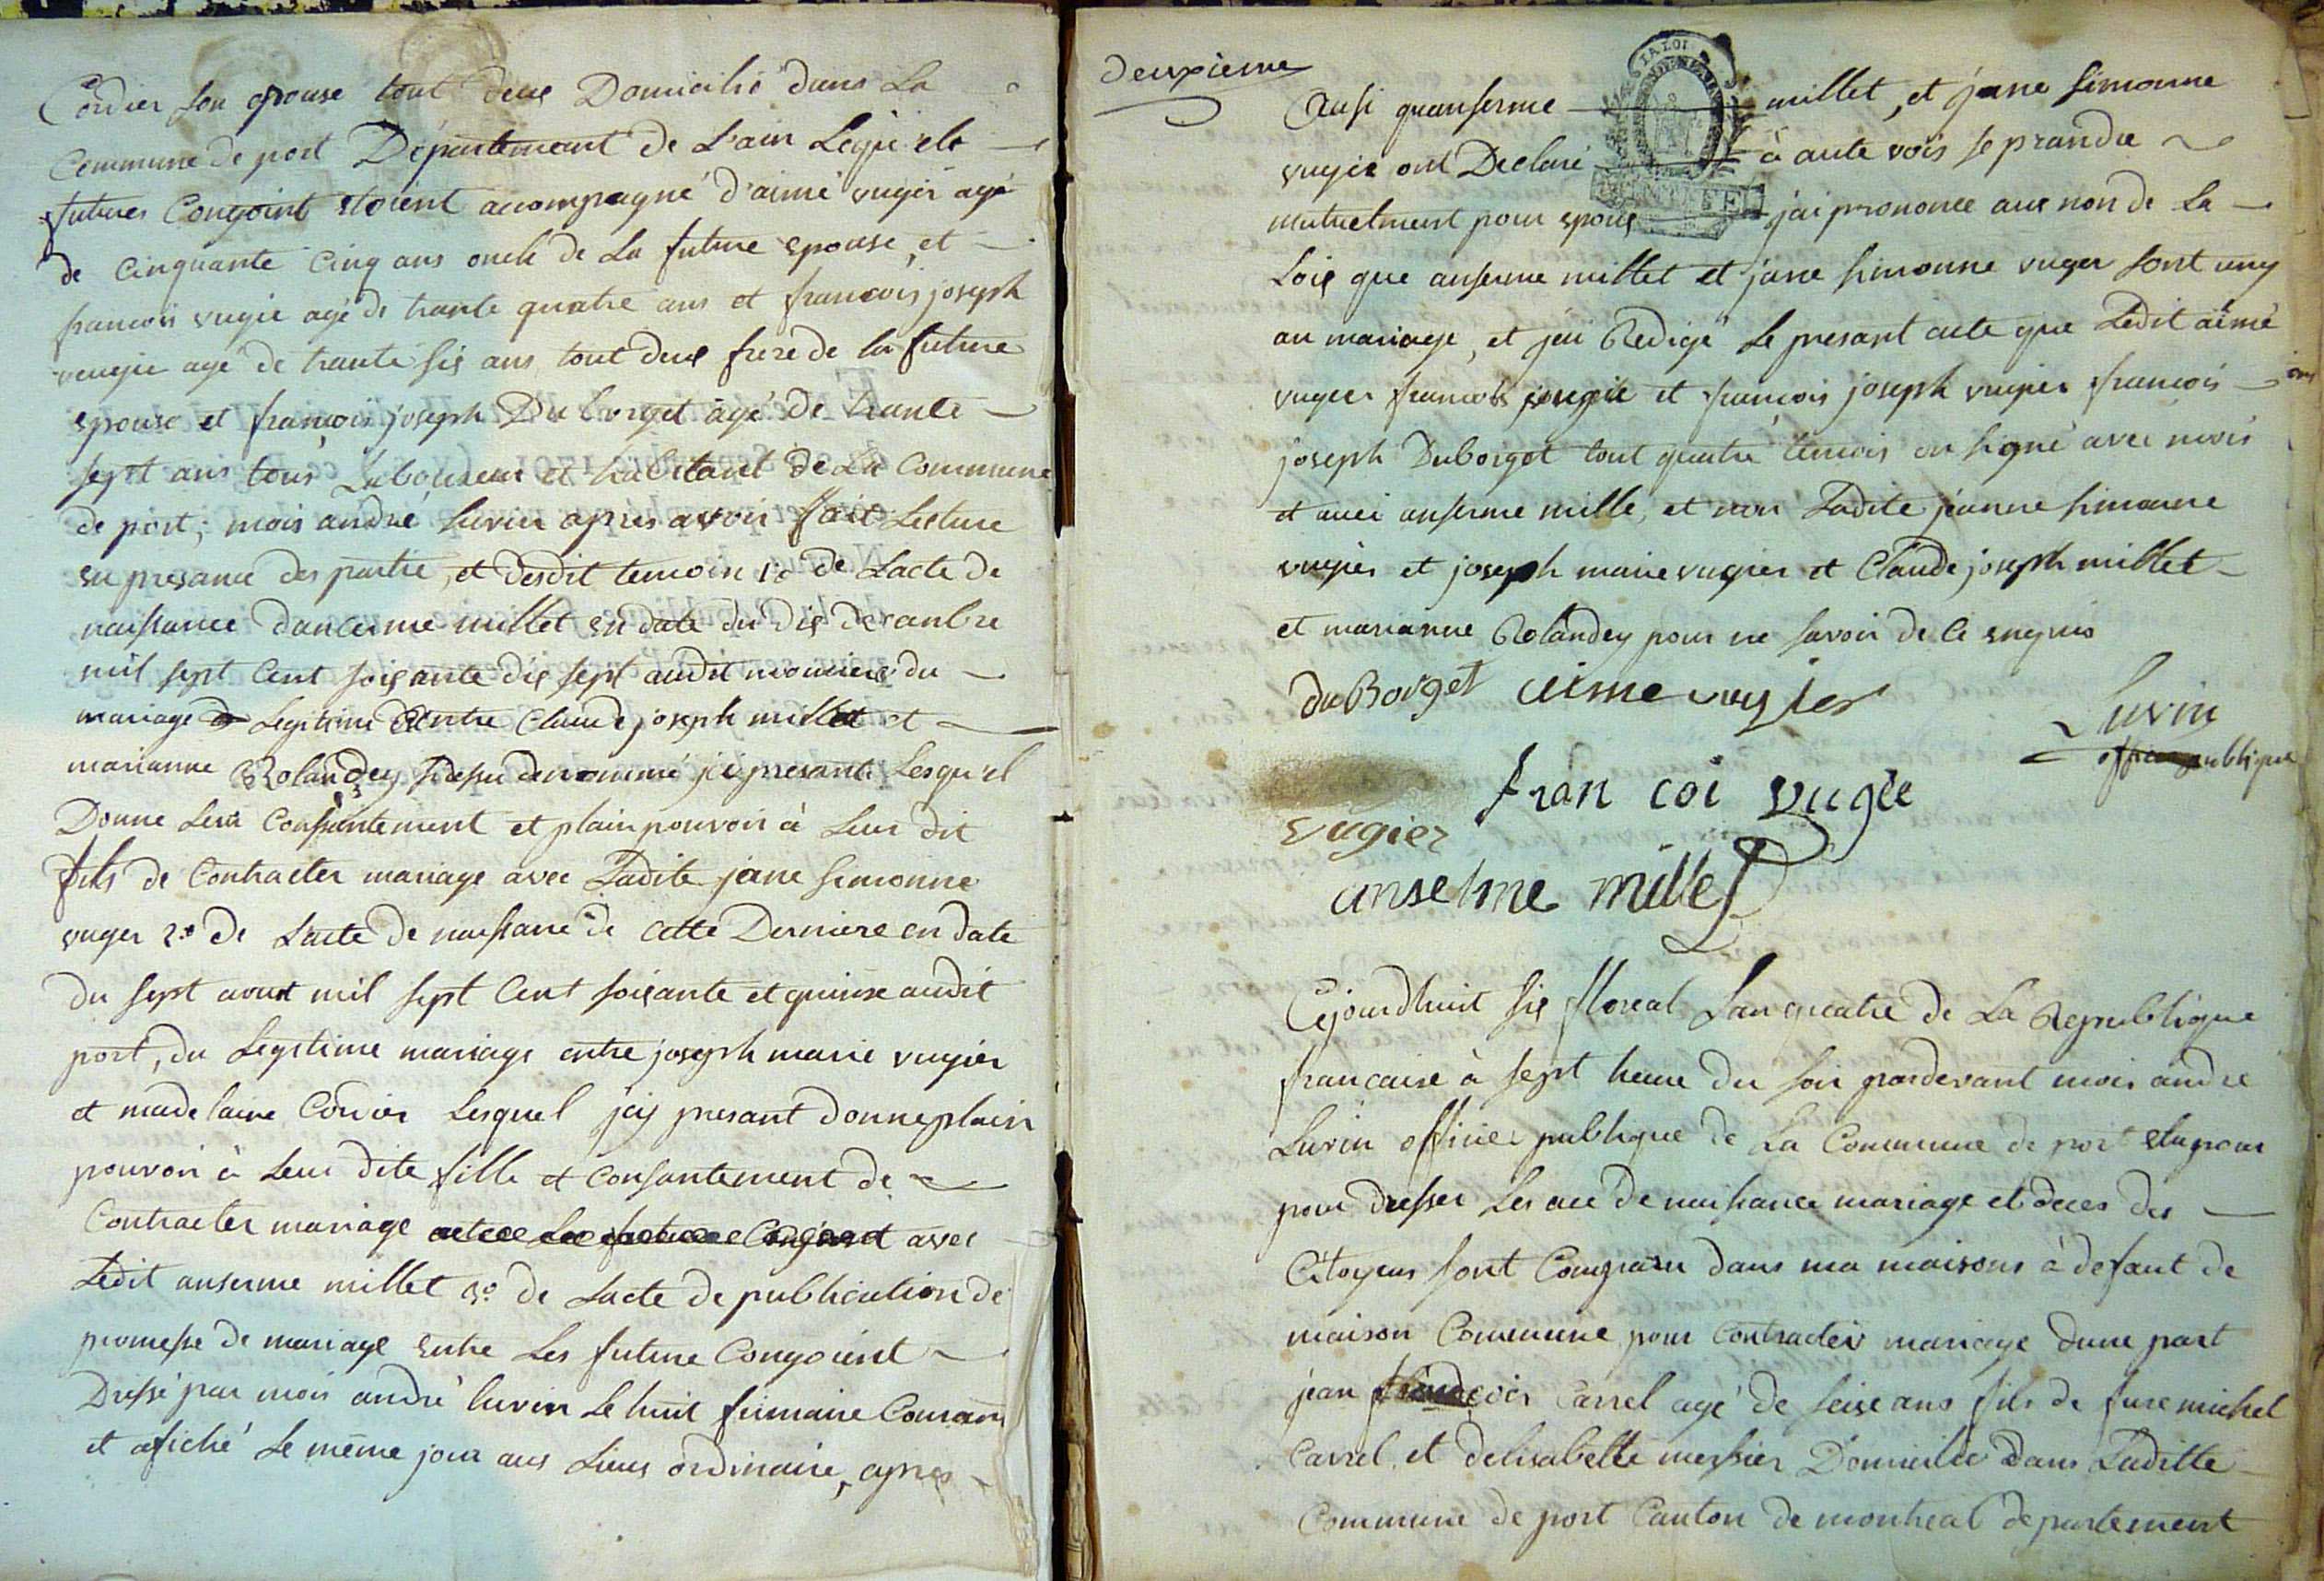 Cordier son epouse tout deux Domicilié dans La
Commune de port Département de L'ain Lesquels
futures Conyoint etoient accompagné d'aimé vugier agé
de Cinquante Cinq ans oncle de La future epouse, et
francois vugie agé de trante quatre ans et francois joseph
veugie agé de trante six ans tout deux frere de la future
epouse et francois joseph Duborget âgé de trante
sept ans tous Laboureur et habitant de La Commune
de port; mois andré Luvin apres avoir fait Lecture
en presance des partie, et desdit temoin 1o de Lacte de
naissance dancerme millet en date du dix decanbre
mil sept Cent soixante dix sept audit du
mariage Legitime dentre Claude joseph millet et
marianne Rolandey denommé ici presant Lesquel
Donne Leur Consantement et plain pouvoir à Leur dit
fils de Contracter mariage avec Ladite jane simonne
vuger 2o de Lacte de naissance de cette Derniere en date
du sept avout mil sept Cent soixante et quinze audit
port, du Legitime mariage entre joseph marie vugier
et madelaine Cordier Lesquel jcy presant donne plain
pouvoir à Leur dite fille et Consantement de
Contracter mariage avec
Ledit anserme millet 3o de Lacte de publication de
promesse de mariage entre Les future Conyoient
Dressé par mois andré luvin Le huit frimaire Courant
et afiché Le même jour aux Lieux ordinaire, apres
deuxieme
Ausi quanserme millet, et jane simonne
vugier ont Declaré à aute vois se prandre
mutuelment pour epoux jai prononcé aux non de La
Loix que anserme millet et jane simonne vuger sont uny
an mariage, et jai Redigé Le presant acte que Ledit aimé
vugier francois vugie et francois joseph vugier francois
joseph Duborget tout quatre temois on signé avec mois
et avec anserme mille, et non Ladite jeanne simonne
vugier et joseph marie vugier et Claude joseph millet
et marianne Rolandey pour ne savoir de Ce enquis
duBorget aime vugier
Luvin
officier publique
fran coi vugie
vugier
anselme millet
Cejourdhuit six floreal Lan quatre de La Republique
francaise à sept heure du soir pardevant mois andre
Luvin officier publique de La Commune de port elu pour
pour dresser Les acte de naissance mariage et deces des
Citoyens sont Comparu dans ma maisons à defaut de
maison Commune pour Contracter mariage dune part
jean francois Carrel agé de seize ans fils de fure michel
Carrel et delisabette messier Domicilié dans Laditte
Commune de port Canton de montreal departement